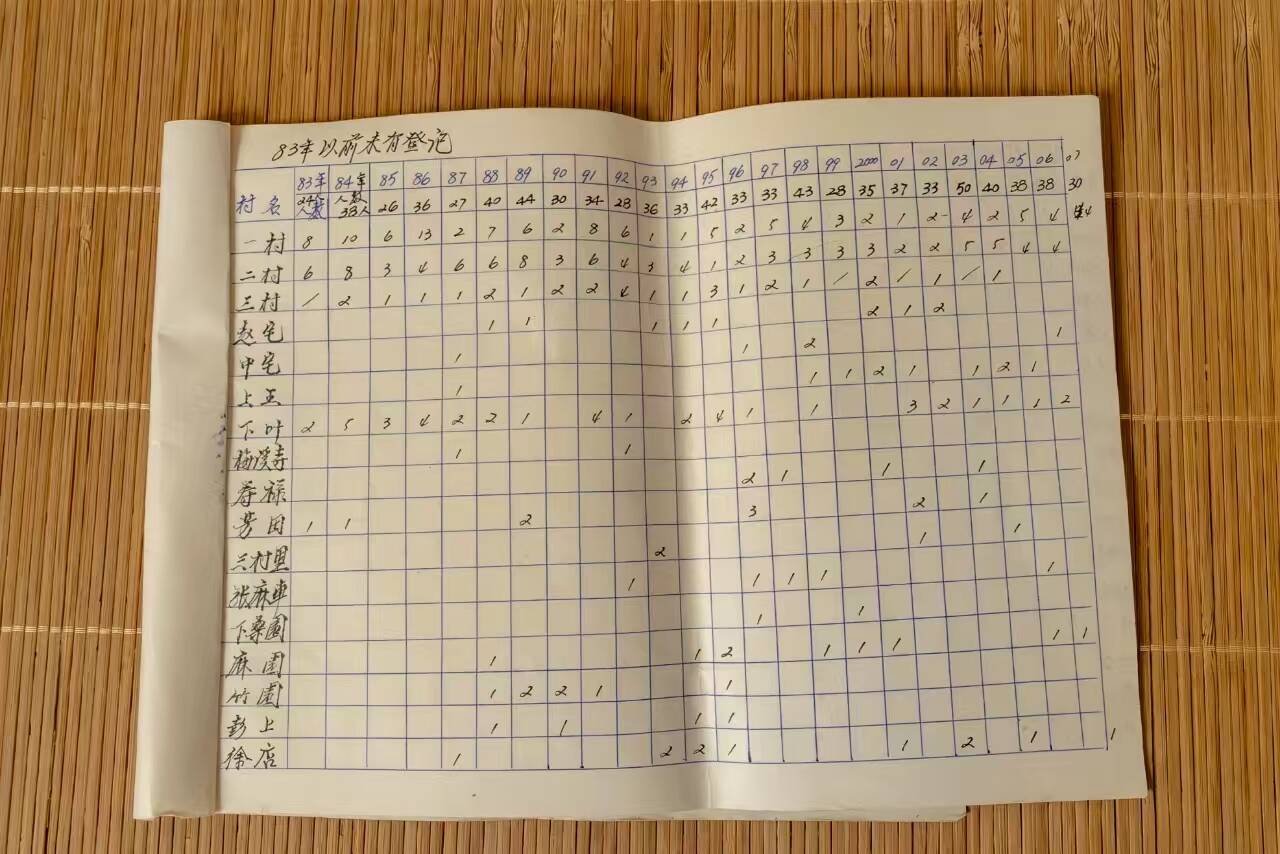 83年以前未有登记
村名 83年 84年 85 86 87 88 89 90 91 92 93 94 95 96 97 98 99 2000 01 02 03 04 05 06 07
24个人数 人数38人 26 36 27 40 44 30 34 28 36 33 42 33 33 43 28 35 37 33 50 40 38 38 30
一村 8 10 6 13 2 7 6 2 8 6 1 1 5 2 5 4 3 2 1 2 4 2 5 4 4
二村 6 8 3 4 6 6 8 3 6 4 3 4 1 2 3 3 3 3 2 2 5 5 4 4
三村 / 2 1 1 1 2 1 2 2 4 1 1 3 1 2 1 / 2 / 1 / 1
赵宅 1 1 1 1 1 2 1 2
中宅 1 1 2 1
上王 1 1 1 2 1 1 2 1
下叶 2 5 3 4 2 2 1 4 1 2 4 1 1 3 2 1 1 1 2
梅溪寺 1 1
寿禄 2 1 1 1
芳田 1 1 2 3 2 1
三村里 2 1 1
张麻車 1 1 1 1 1
下桑園 1 1
麻園 1 1 2 1 1 1 1 1
竹園 1 2 2 1 1
彭上 1 1 1 1
徐店 1 2 2 1 1 2 1 1